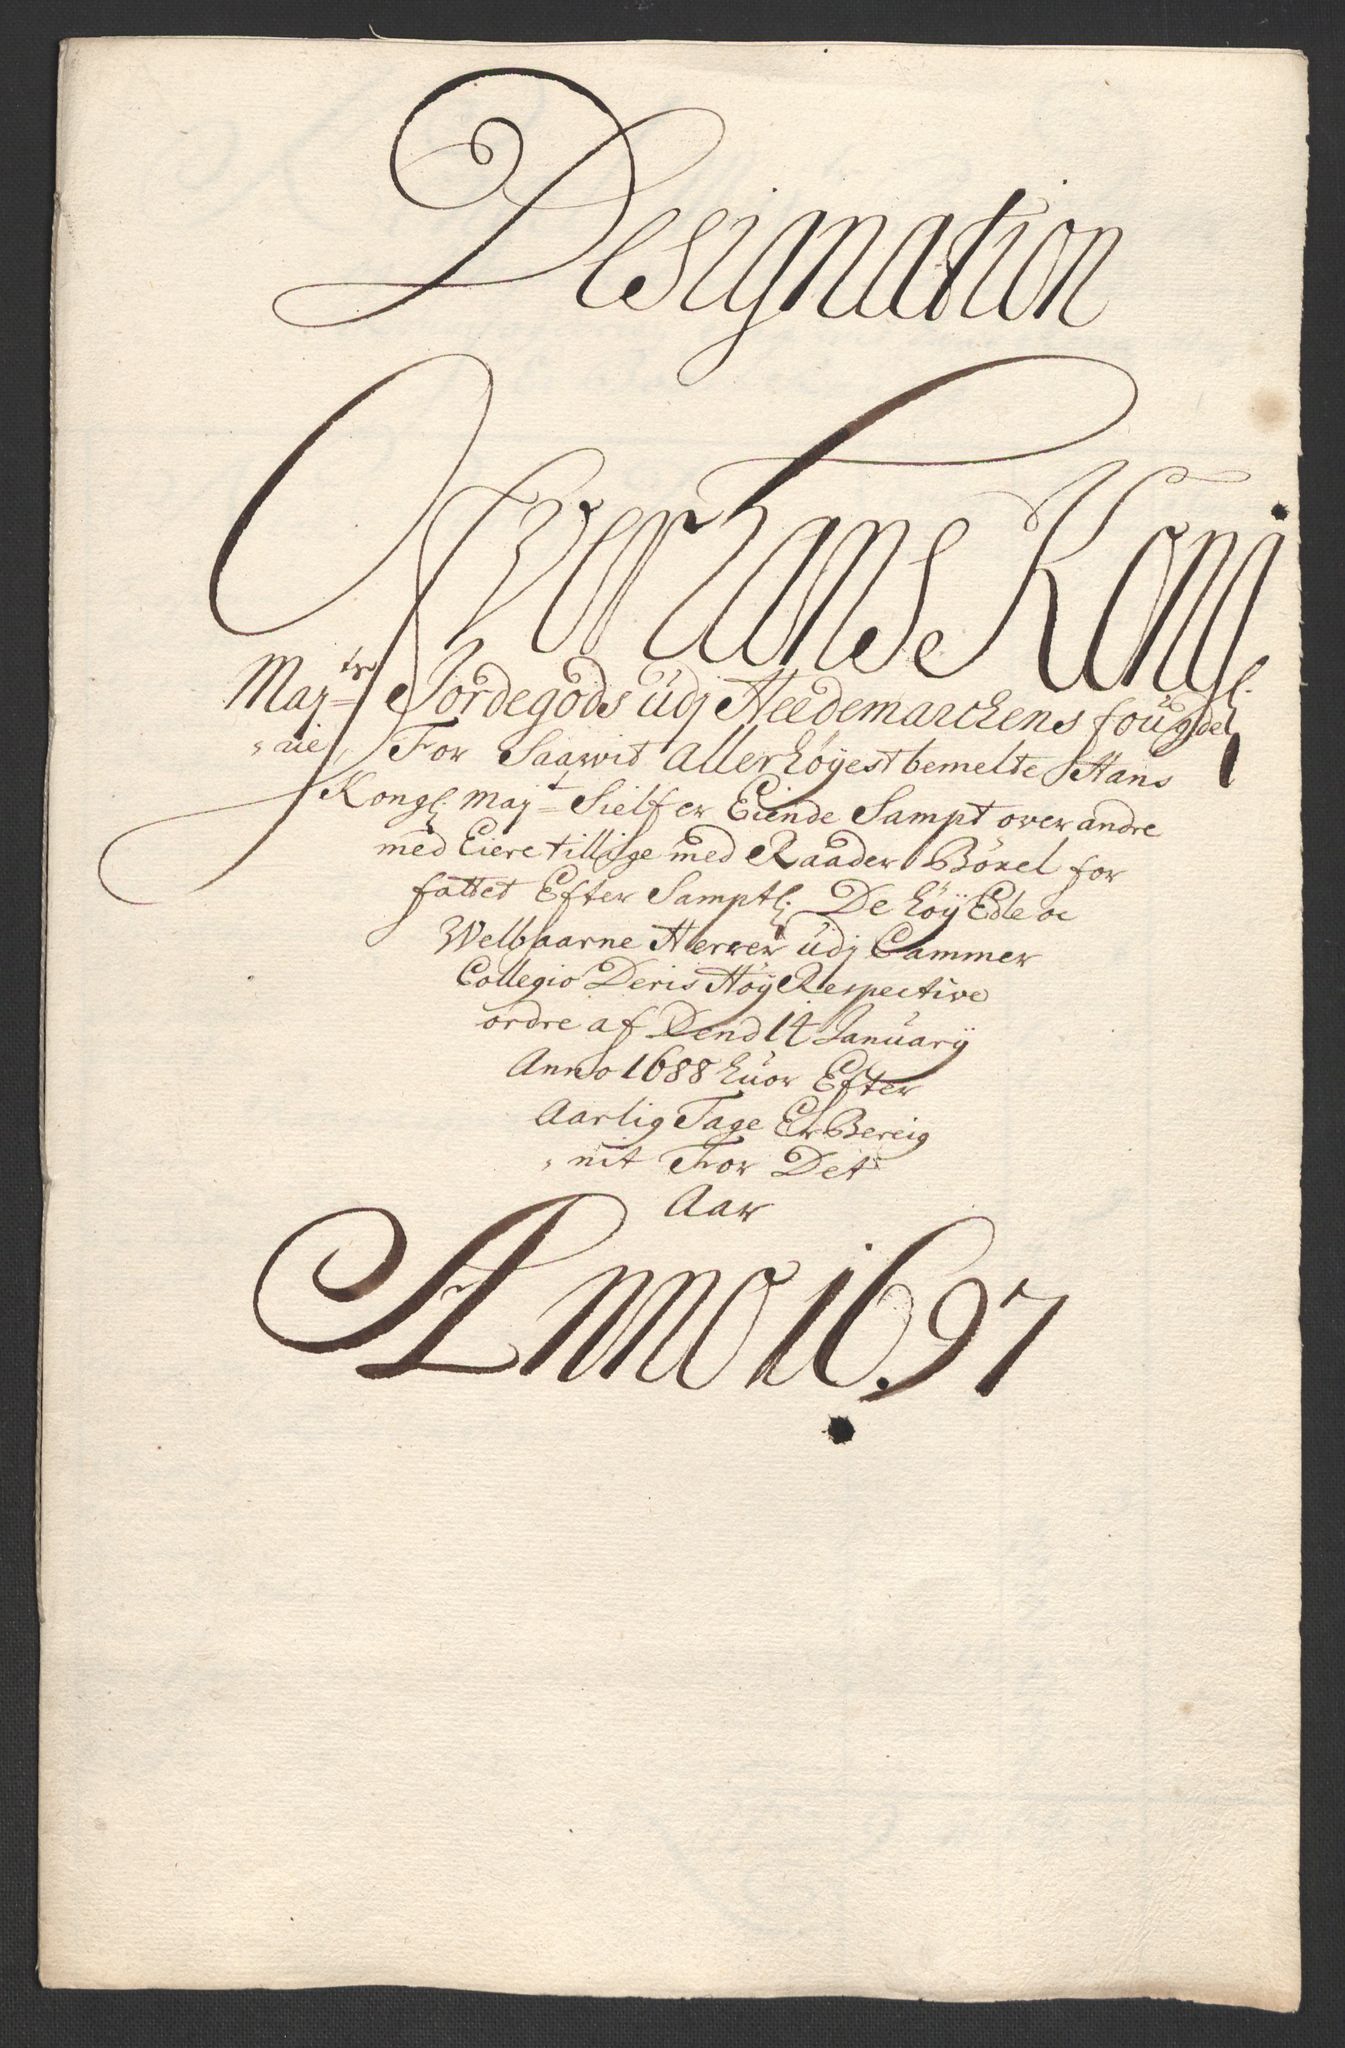 Designation
Ofver Hans Kongl:
Maj:ts Jordegods udj Heedemarchens fougde
„rie, For Saawit allerhöyest bemelte Hans
Kongl: Maj:t Sielf er Eiende Sampt over andre
med Eiere tillige med Raader Böxel for
fattet Efter Samptl: De höy Edle oc
Welbaarne Herrer udj Cammer
Collegio Deris Höy Respective
ordre af Dend 14 January
Anno 1688 huor Efter
Aarlig Tage Er Bereig
„nit For Det
Aar
Anno 1697